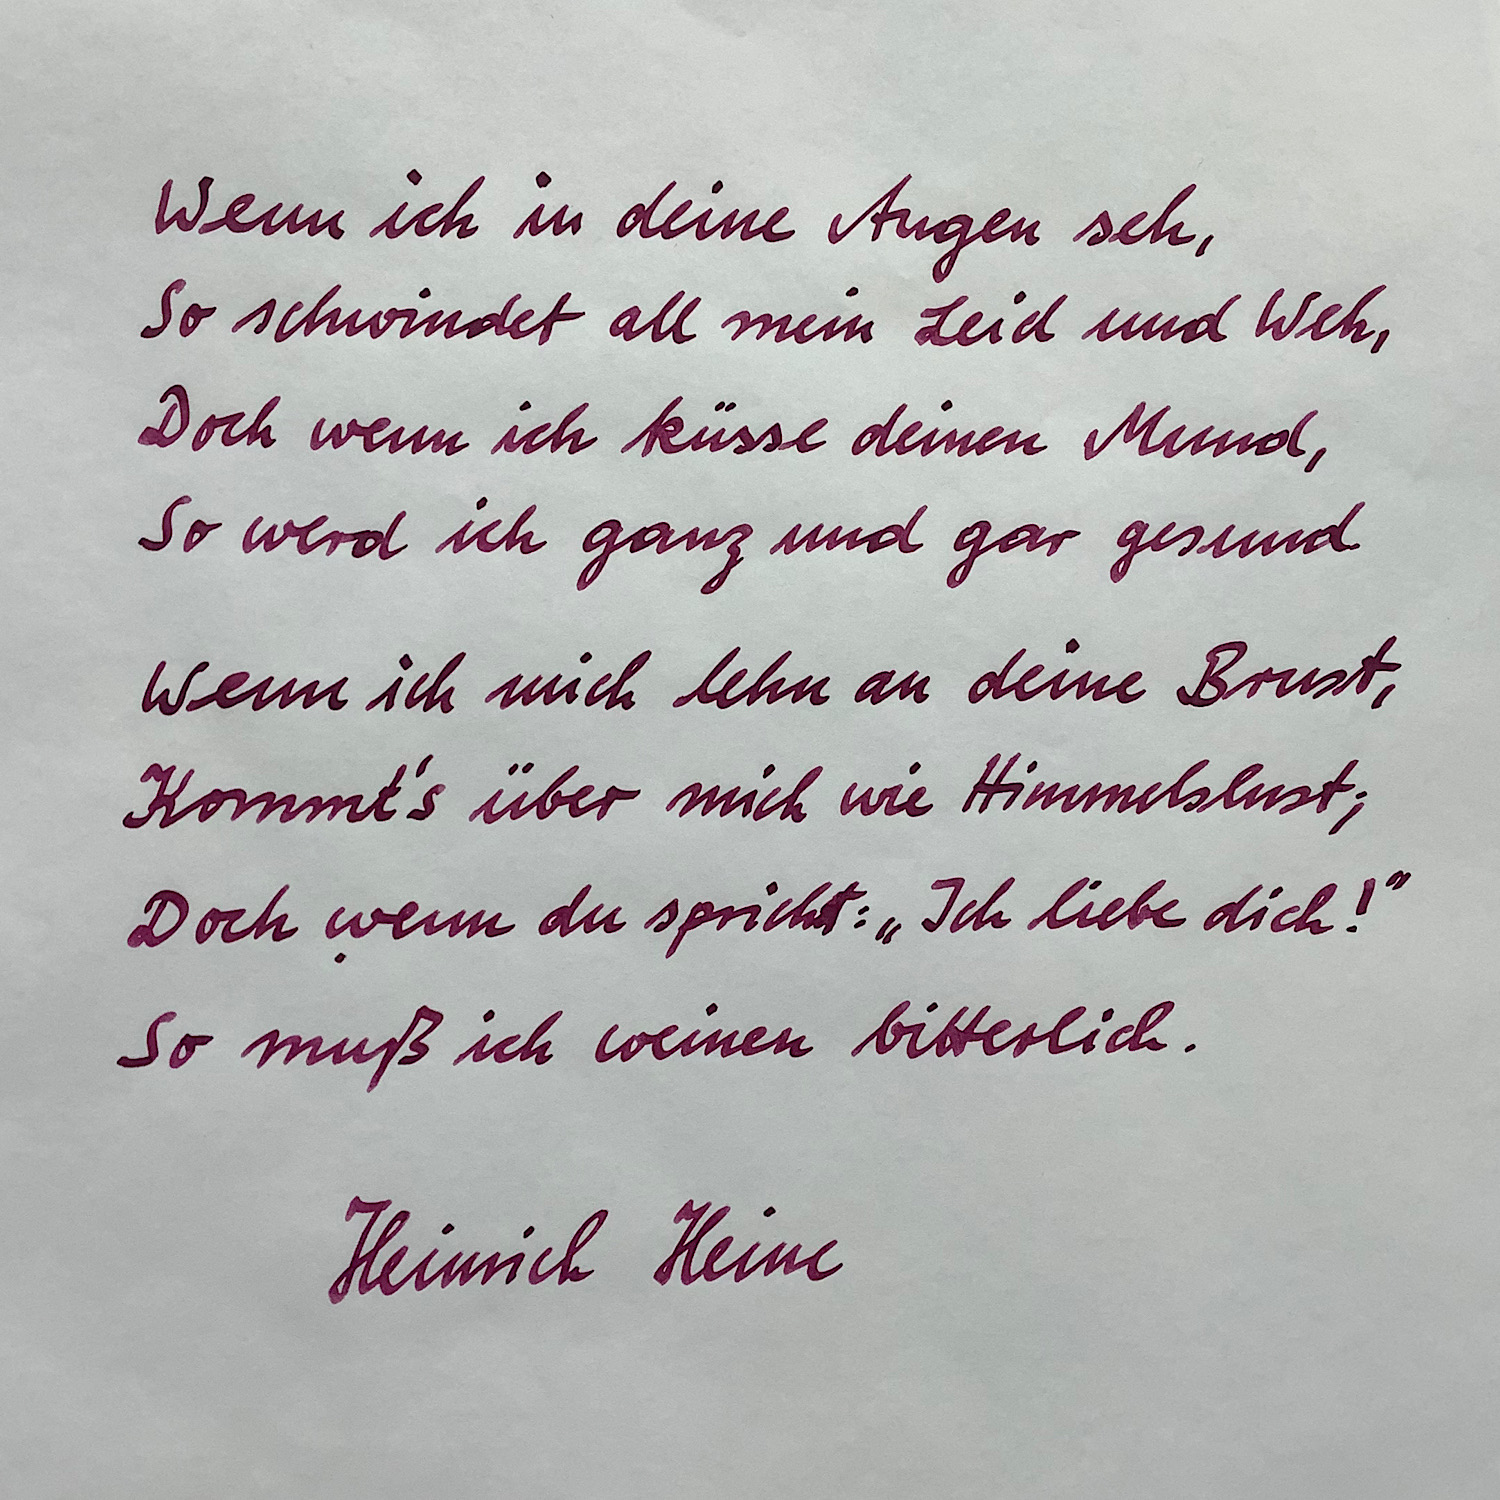 Wenn ich in deine Augen seh,
So schwindet all mein Leid und Weh,
Doch wenn ich küsse deinen Mund,
So werd ich ganz und gar gesund.
Wenn ich mich lehn an deine Brust,
Kommt's über mich wie Himmelslust;
Doch wenn du spricht: „Ich liebe dich!"
So muß ich weinen bitterlich.
Heinrich Heine